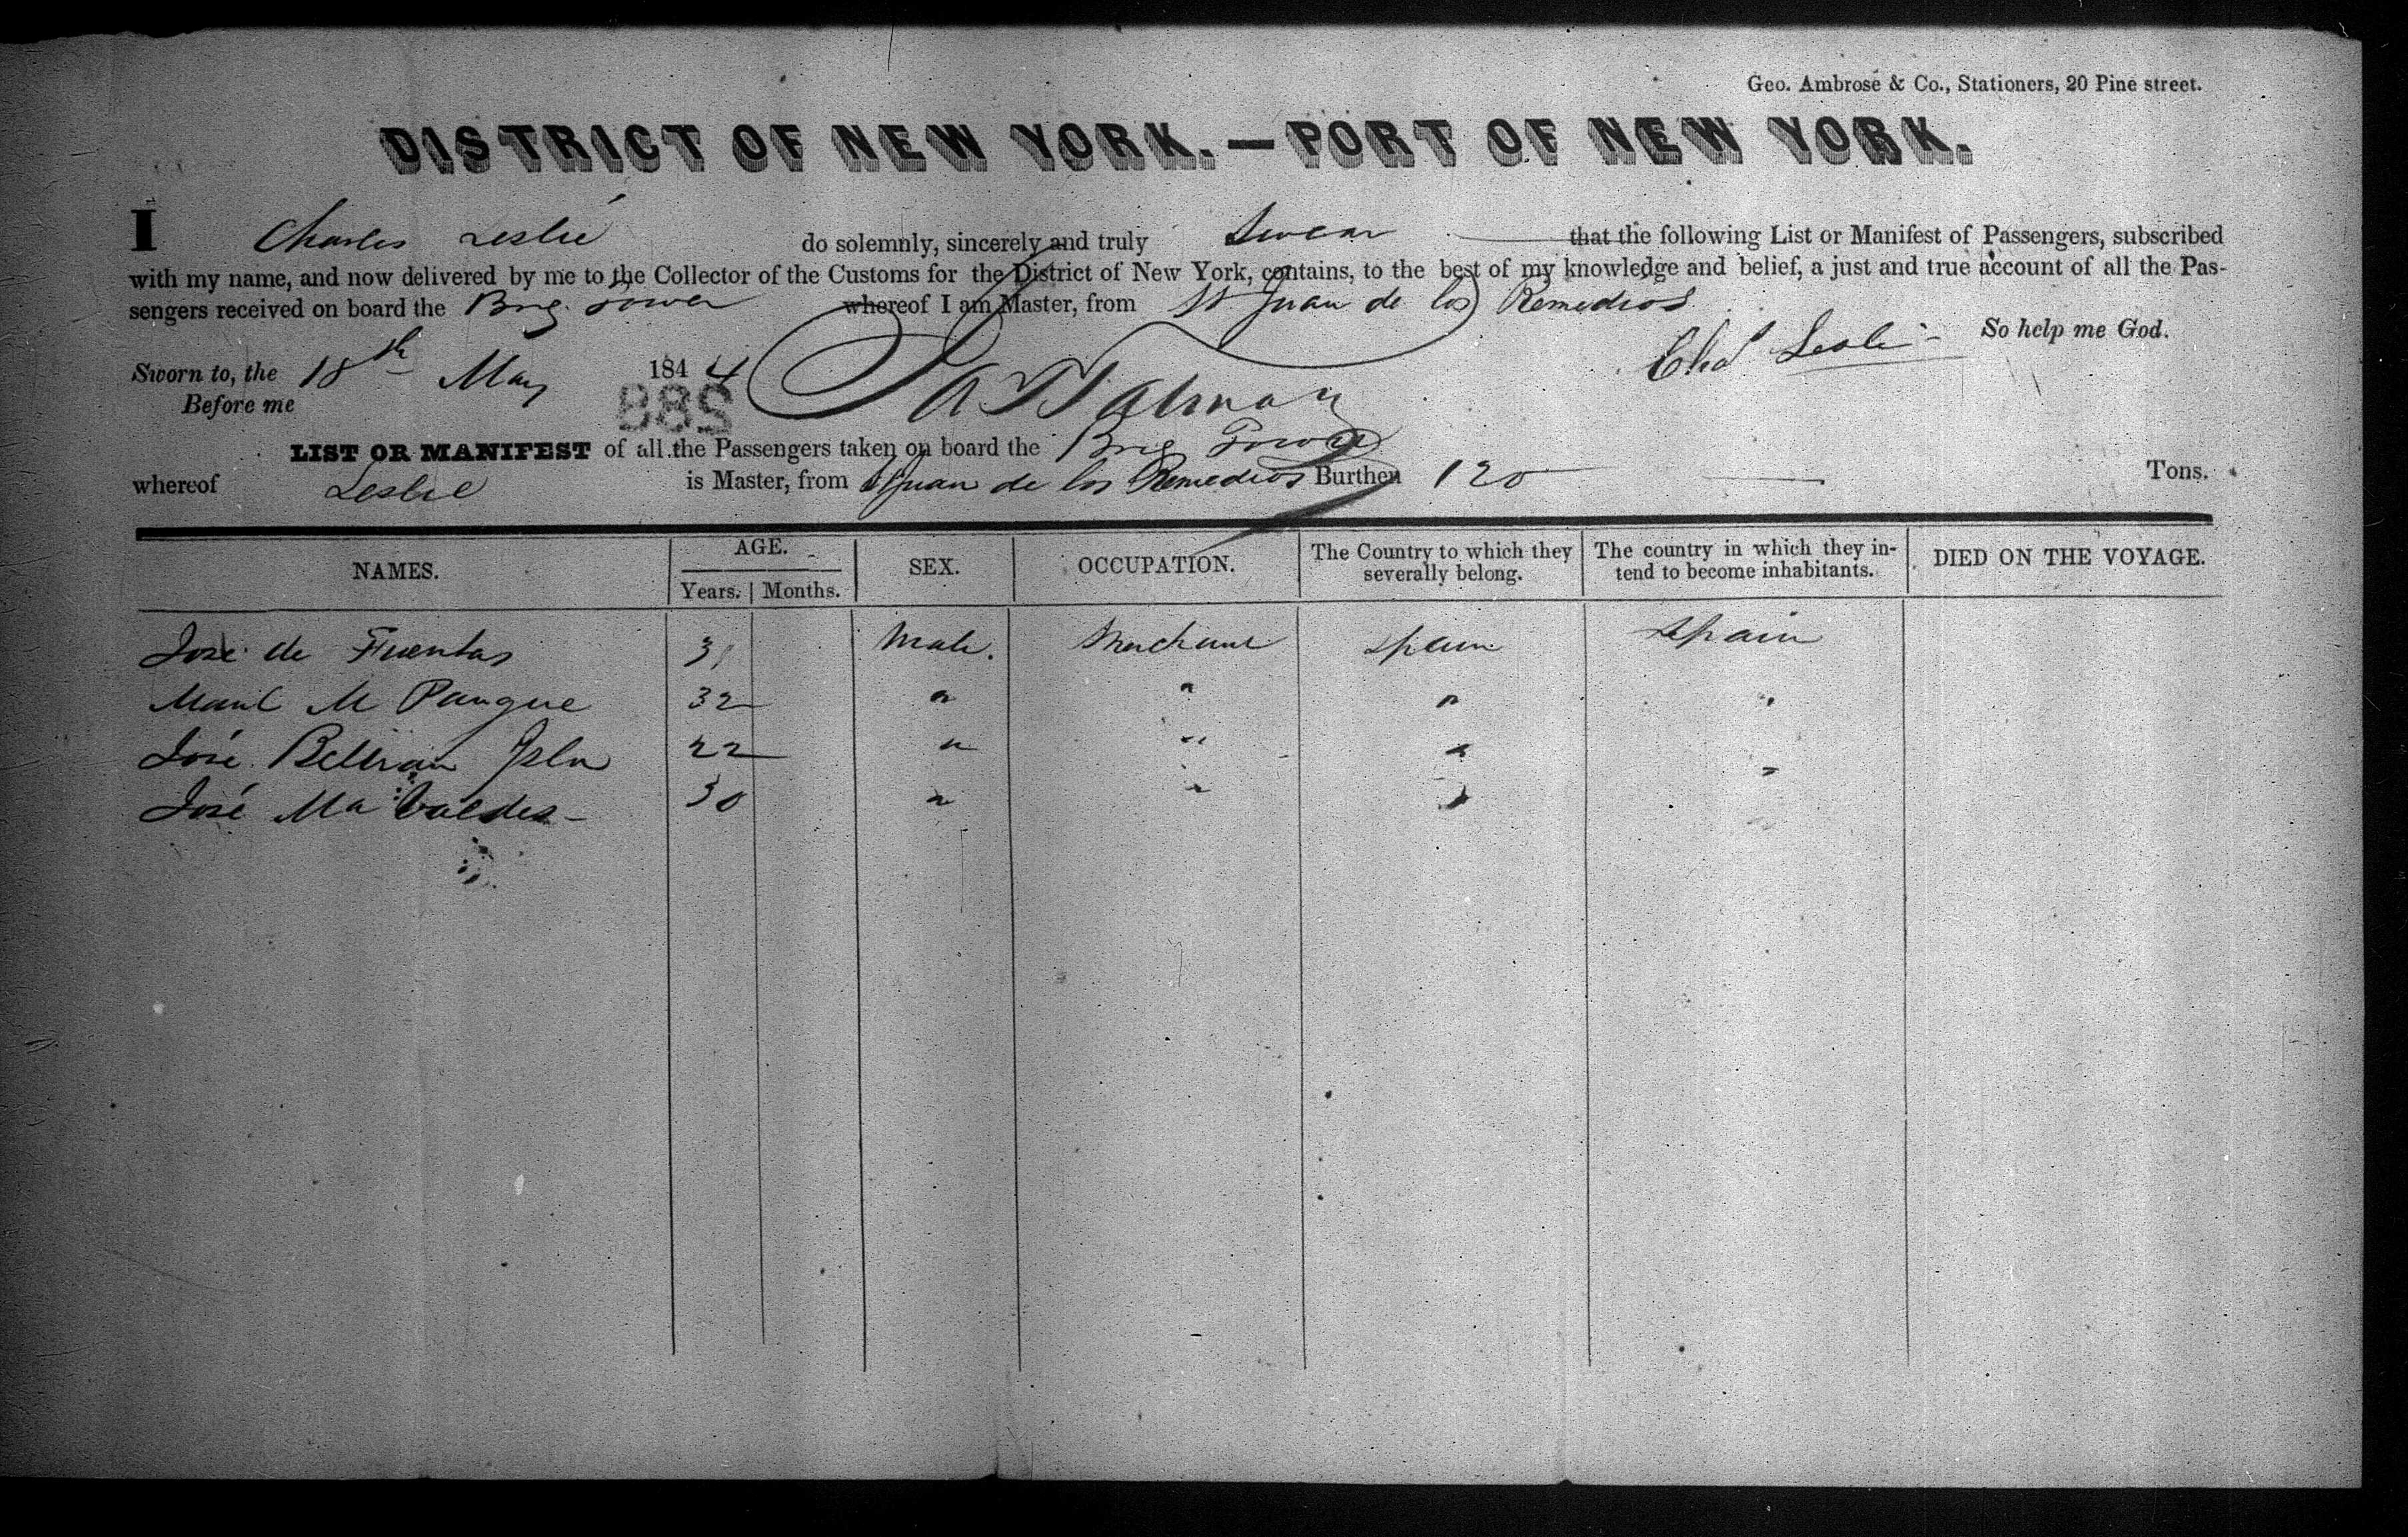 Geo. Ambrose & Co., Stationers, 20 Pine street.
DISTRICT OF NEW YORK.—PORT OF NEW YORK.
I Charles Leslie do solemnly, sincerely and truly Swear that the following List or Manifest of Passengers, subscribed
with my name, and now delivered by me to the Collector of the Customs for the District of New York, contains, to the best of my knowledge and belief, a just and true account of all the Pas-
sengers received on board the Brig. Tower whereof I am Master, from St Juan de los Remedios
Chas Leslie So help me God.
Sworn to, the 18th May 1844
Before me
288
LIST OR MANIFEST of all the Passengers taken on board the Brig Tower
whereof Leslie is Master, from St Juan de los Remedios Burthen 120 Tons.
NAMES. AGE. Years. Months. SEX. OCCUPATION. The Country to which they severally belong. The country in which they in-tend to become inhabitants. DIED ON THE VOYAGE.
José de Fuentas 31 Male. Merchant Spain Spain
Manl M 32 " " " "
José Beltran 22 " " " "
José Ma Valdes 30 " " "